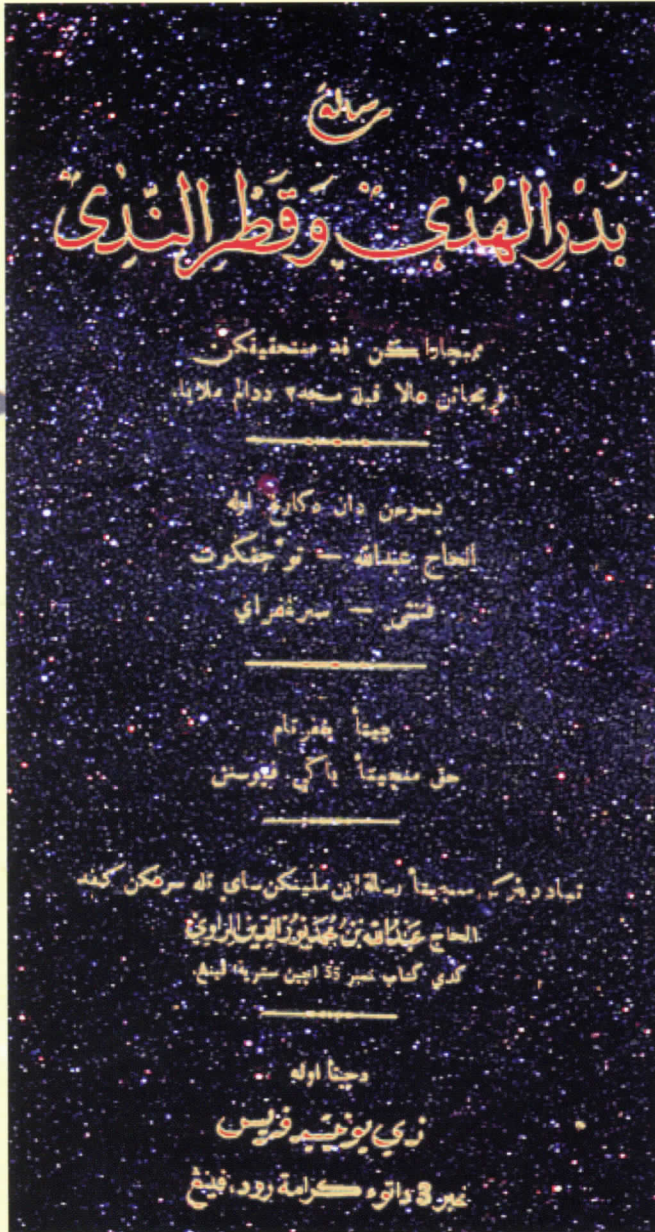 رسالة
بَدْرِ الْهُدٰى وَقَطْرِ النَّدٰى
ممبچاراكن فد منتحقيقكن
فريحاتن هالا قبلة مسجد٢ ددالم ملايا.
دسوسن دان دكارڠ اوله
الحاج عبدالله — تو' جڠكوت
فنتي — سبرڠ فراي
چيتأ يڠفرتام
حق منچيتأ باكي ڤپوسنڽ
تياد دبنركن منچيتأ رسالة اين ملينكن ساي تله سرهكن كفد
الحاج عَبْدُاللهِ بْنُ مُحَمَّد نُورُالدِّينِ الرَّاوِيّ
كدي كتاب نمبر 55 اچين ستريت، ڤينڠ.
دچيتأ اوله
ذي يونيتد ڤريس
نمبر 3 داتوء كرامة رود، ڤينڠ